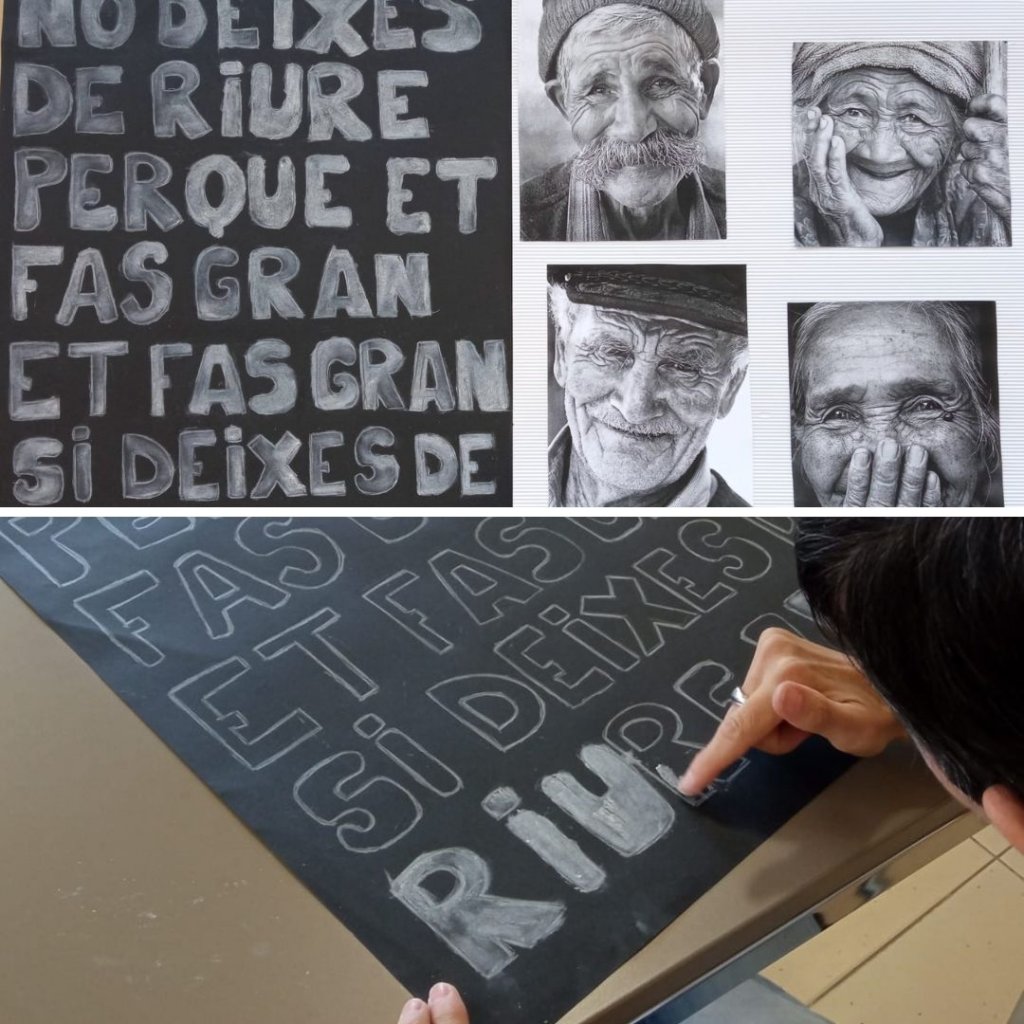 NO DEiXES
DE RiURE
PERQUE ET
FAS GRAN
ET FAS GRAN
Si DEiXES DE
FAS
ET FAS
Si DEiXES
RiURE